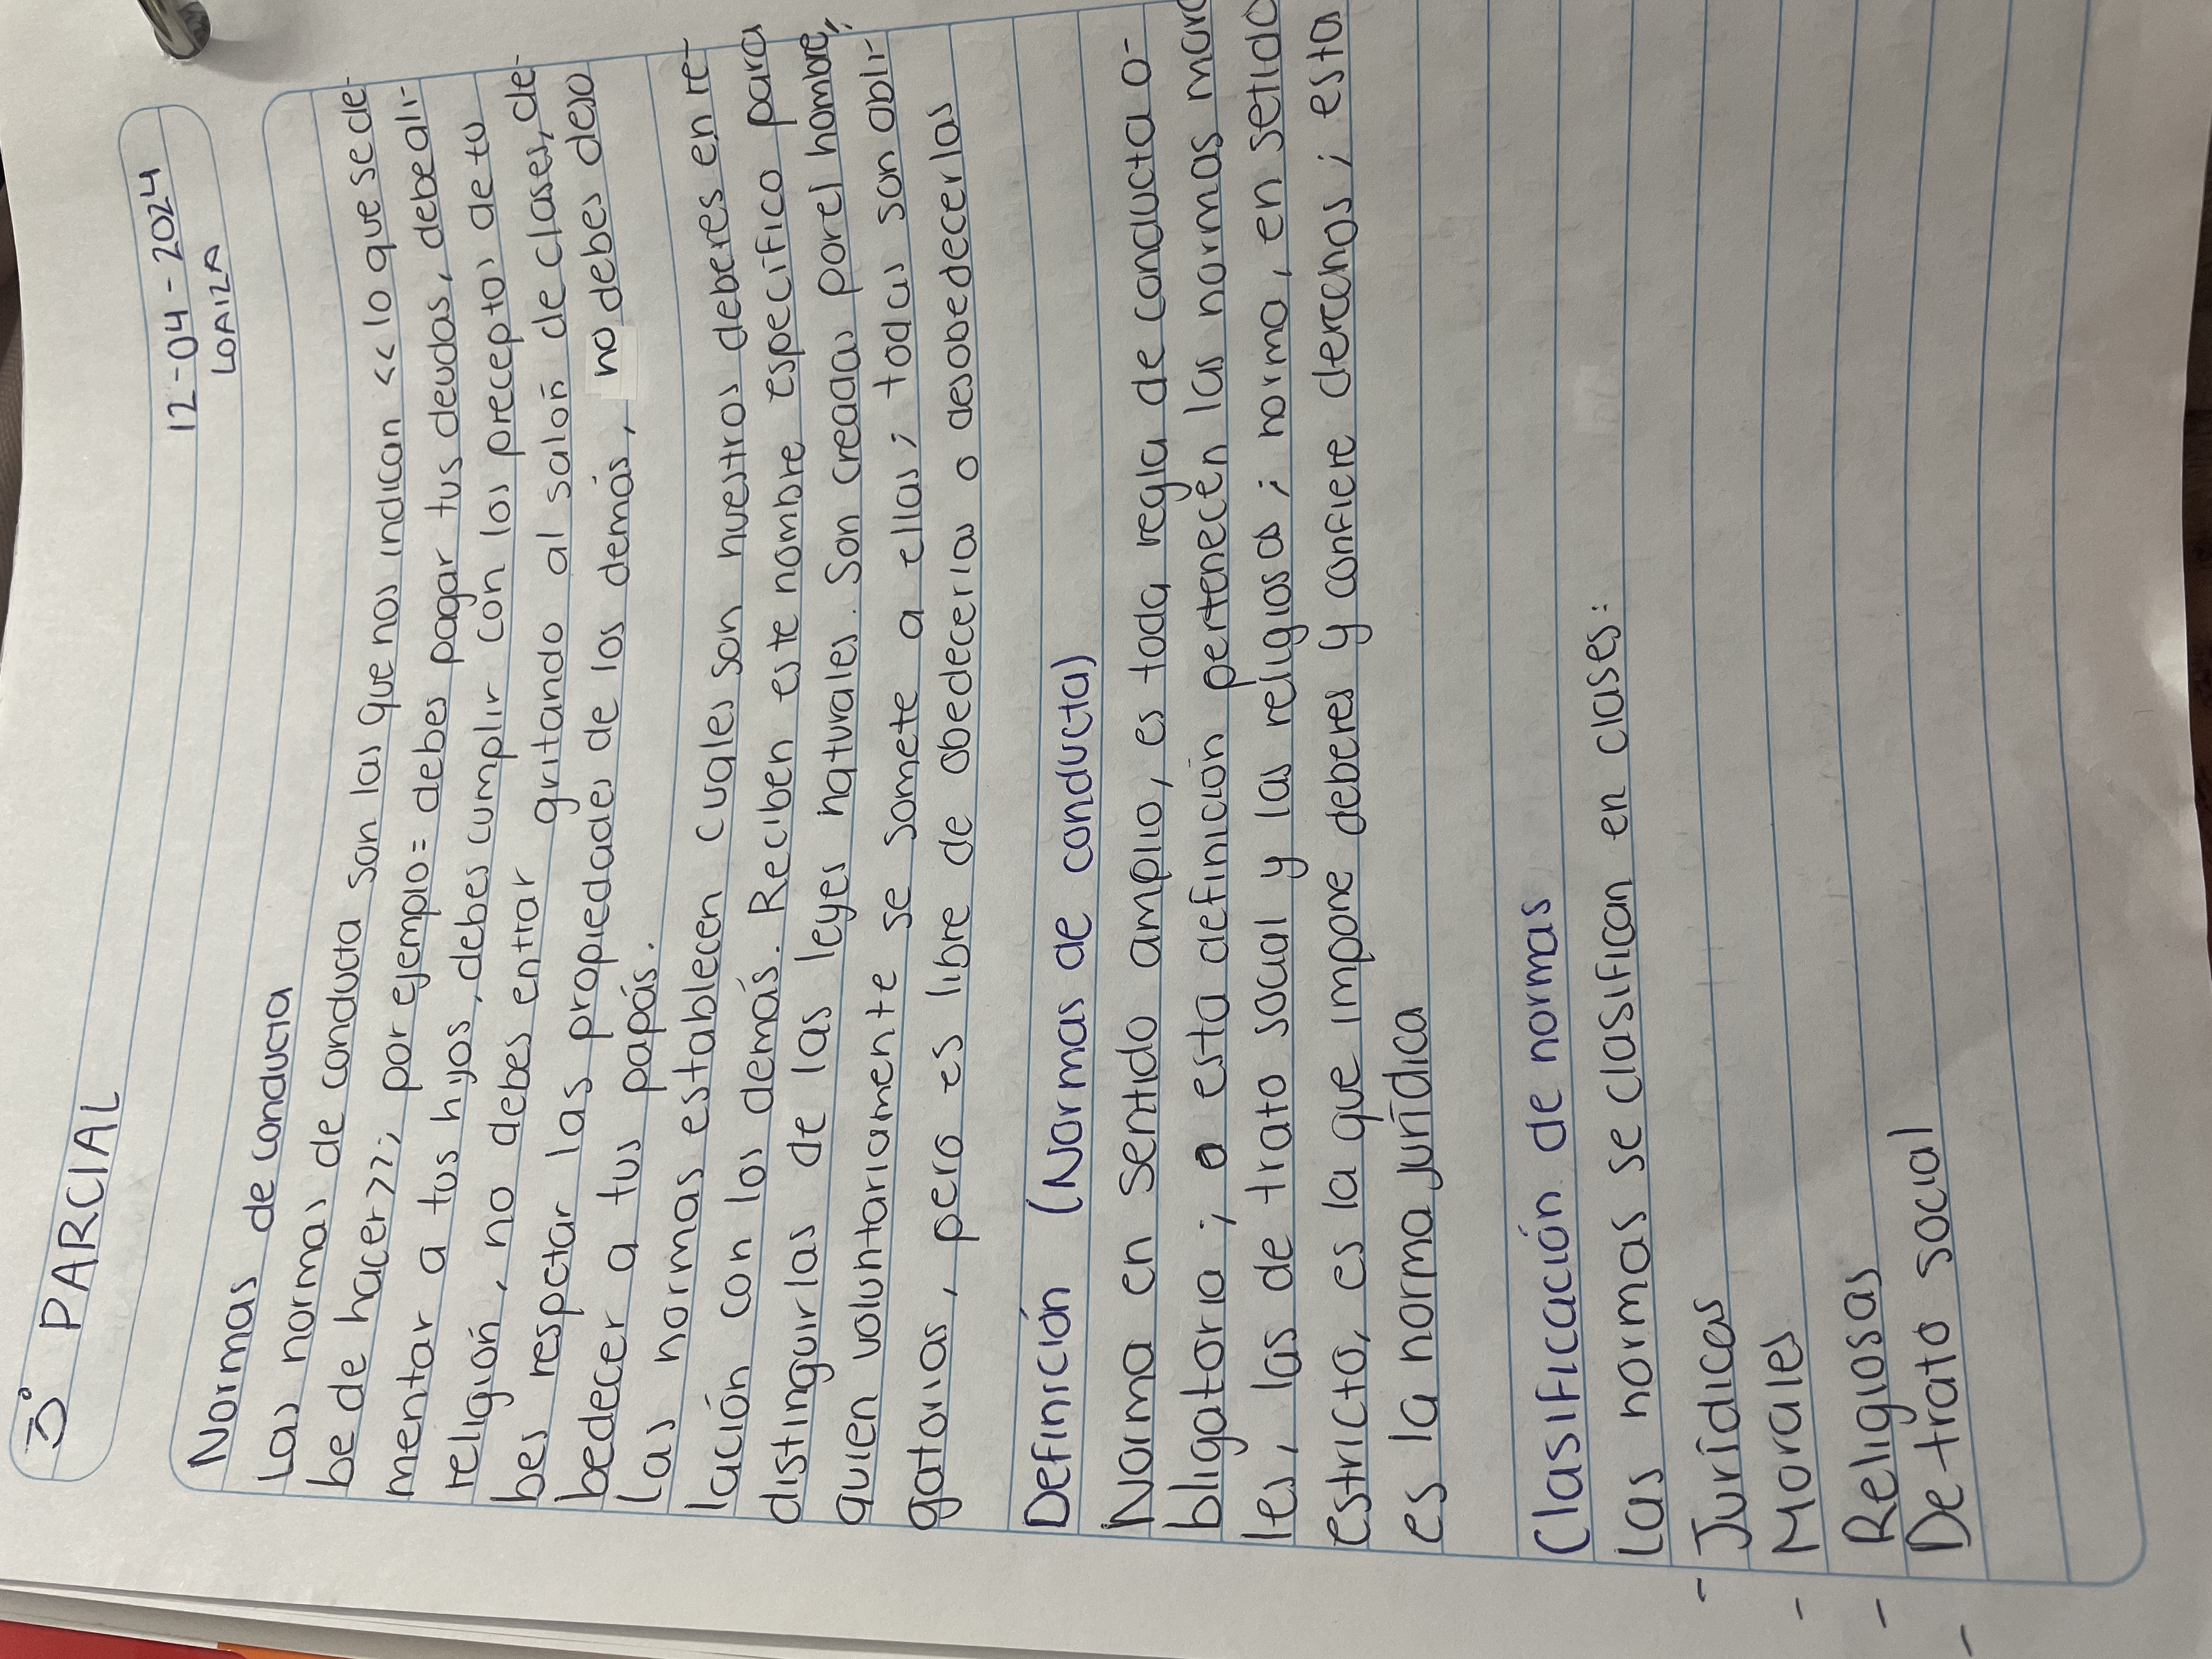 3° PARCIAL
12-04-2024
LOAIZA
Normas de conducta
Las normas de conducta son las que nos indican << lo que se de-
be de hacer>>; por ejemplo= debes pagar tus deudas, debe ali-
mentar a tus hijos, debes cumplir con los preceptos de tu
religión, no debes entrar gritando al salón de clases, de-
bes respetar las propiedades de los demás, no debes deso
bedecer a tus papás.
Las normas establecen cuales son nuestros deberes en re-
lación con los demás. Reciben este nombre específico para
distinguirlas de las leyes naturales. Son creadas por el hombre,
quien voluntariamente se somete a ellas; todas son obli-
gatorias, pero es libre de obedecerlas o desobedecerlas
Definición (Normas de conducta)
Norma en sentido amplio, es toda regla de conducta o-
bligatoria; a esta definición pertenecen las normas mora
les, las de trato social y las religiosas; norma, en setido
estricto, es la que impone deberes y confiere derechos; esta
es la norma jurídica
Clasificación de normas
Las normas se clasifican en clases:
- Jurídicas
- Morales
- Religiosas
- De trato social